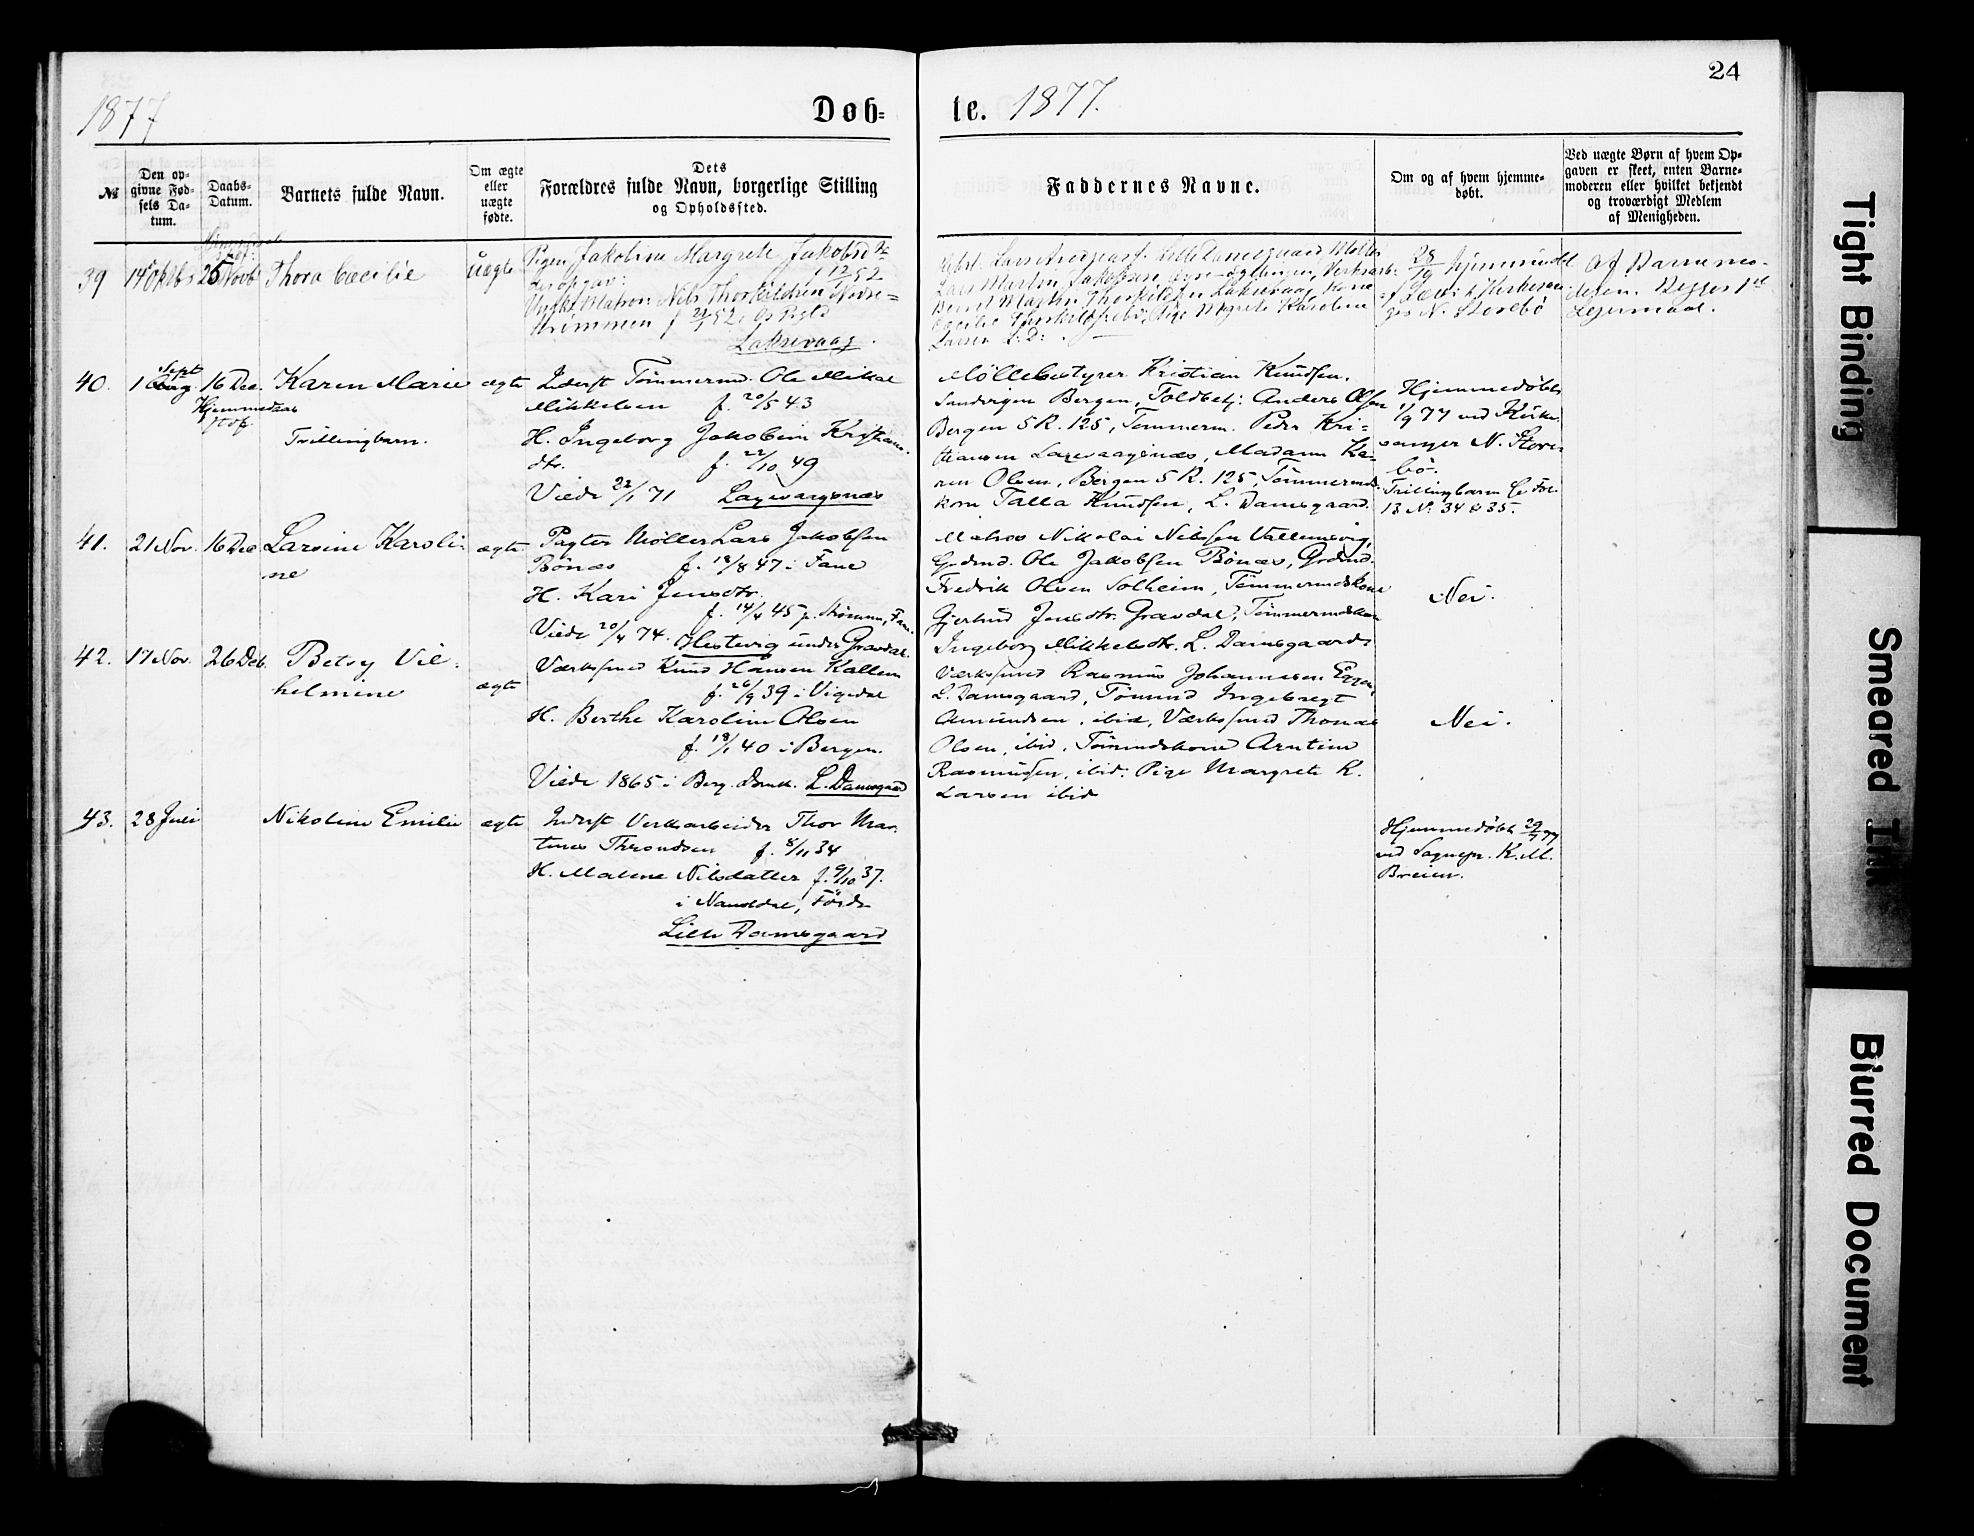 24
1877
Døb-
te. 1877.
№
Den op-
givne Fød-
sels Da-
tum.
Daabs-
Datum.
Barnets fulde Navn.
Om ægte
eller
uægte
fødte.
Dets
Forældres fulde Navn, borgerlige Stilling
og Opholdssted.
Faddernes Navne.
Om og af hvem hjemme-
døbt.
Ved uægte Børn af hvem Op-
gaven er skeet, enten Barne-
moderen eller hvilket bekjendt
og troværdigt Medlem
af Menigheden.
39 14 Oktbr 25 Novb Thora Cæcilie
uægte
Pigen Jakobine Margrete Jakobsd
Ungk. Matros Nils Thorkildsen
Laksevaag.
Lars Martin Jakobsen
N. Storebö
af Barnemo-
deren.
Leiermaal.
40. 1 Sept 16 Dec. Karen Marie
Trillingbarn.
ægte
Inderst Tömmermd. Ole Mikal
Mikkelsen f. 20/5 43
H. Ingeborg Jakobine Kristians-
dtr. f. 22/10 49
Viede 22/1 71 Laxevaagsnæs
Möllebestyrer Kristian Knudsen,
Sandvigen Bergen, Toldbetj: Anders Olsen
Bergen 5 R. 125, Tömmerm. Peder Kri-
stiansen Laxevaagsnæs, Madam Ka-
ren Olsen, Bergen 5 R. 125, Tömmermds-
kone Talla Knudsen, L. Damsgaard.
Hjemmedöbt
1/9 77 ved Kirke-
sanger N. Store-
bö.
Trillingbarn Fol.
13 N. 34 & 35.
41. 21 Nov. 16 Dec Larsine Karoli-
ne
ægte
Pagter Möller Lars Jakobsen
Bönæs f. 18/8 47 i Fane
H. Kari Jensdtr.
f. 14/4 45 p. Strömme, Fane.
Viede 20/4 74. Hestevig under Gravdal.
Matros Nikolai Nilsen Vallemsvig,
Gdmd. Ole Jakobsen Bönæs, Grdmd.
Fredrik Olsen Solheim, Tömmermdskone
Gjertrud Jensdtr. Gravdal, Tömmermdskone
Ingeborg Mikkelsdtr. L. Damsgaard.
Nei.
42. 17 Nov. 26 Deb. Betsy Vil-
helmine
ægte
Værksmd Knud Hansen Kallem
f. 26/9 39 i Vigedal
H. Berthe Karoline Olsen
f. 18/1 40 i Bergen.
Viede 1865 i Berg. Domk. L. Damsgaard
Værksmd Rasmus Johannesen
L. Damsgaard, Tömmd Ingebregt
Amundsen, ibid, Værksmd Thomas
Olsen, ibid, Tömmdskone Arntine
Rasmussen, ibid: Pige Margrete K.
Larsen ibid
Nei.
43. 28 Juli Nikoline Emilie ægte
Inderst Verksarbeider Thor Mar-
tinus Throndsen f. 8/11 34
H. Malene Nilsdatter f. 9/10 37.
i Naustdal, Förde
Lille Damsgaard
Hjemmedöbt 29/7 77
ved Sognepr. K. M.
Breien.
Tight Binding
Smeared Ink
Blurred Document